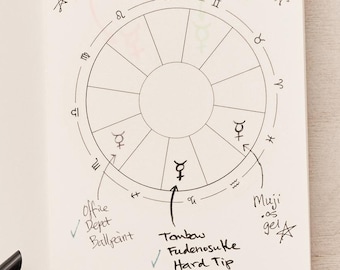 Office
Depot
Ballpoint
Tombow
Fudenosuke
Hard Tip
Muji
.05
gel